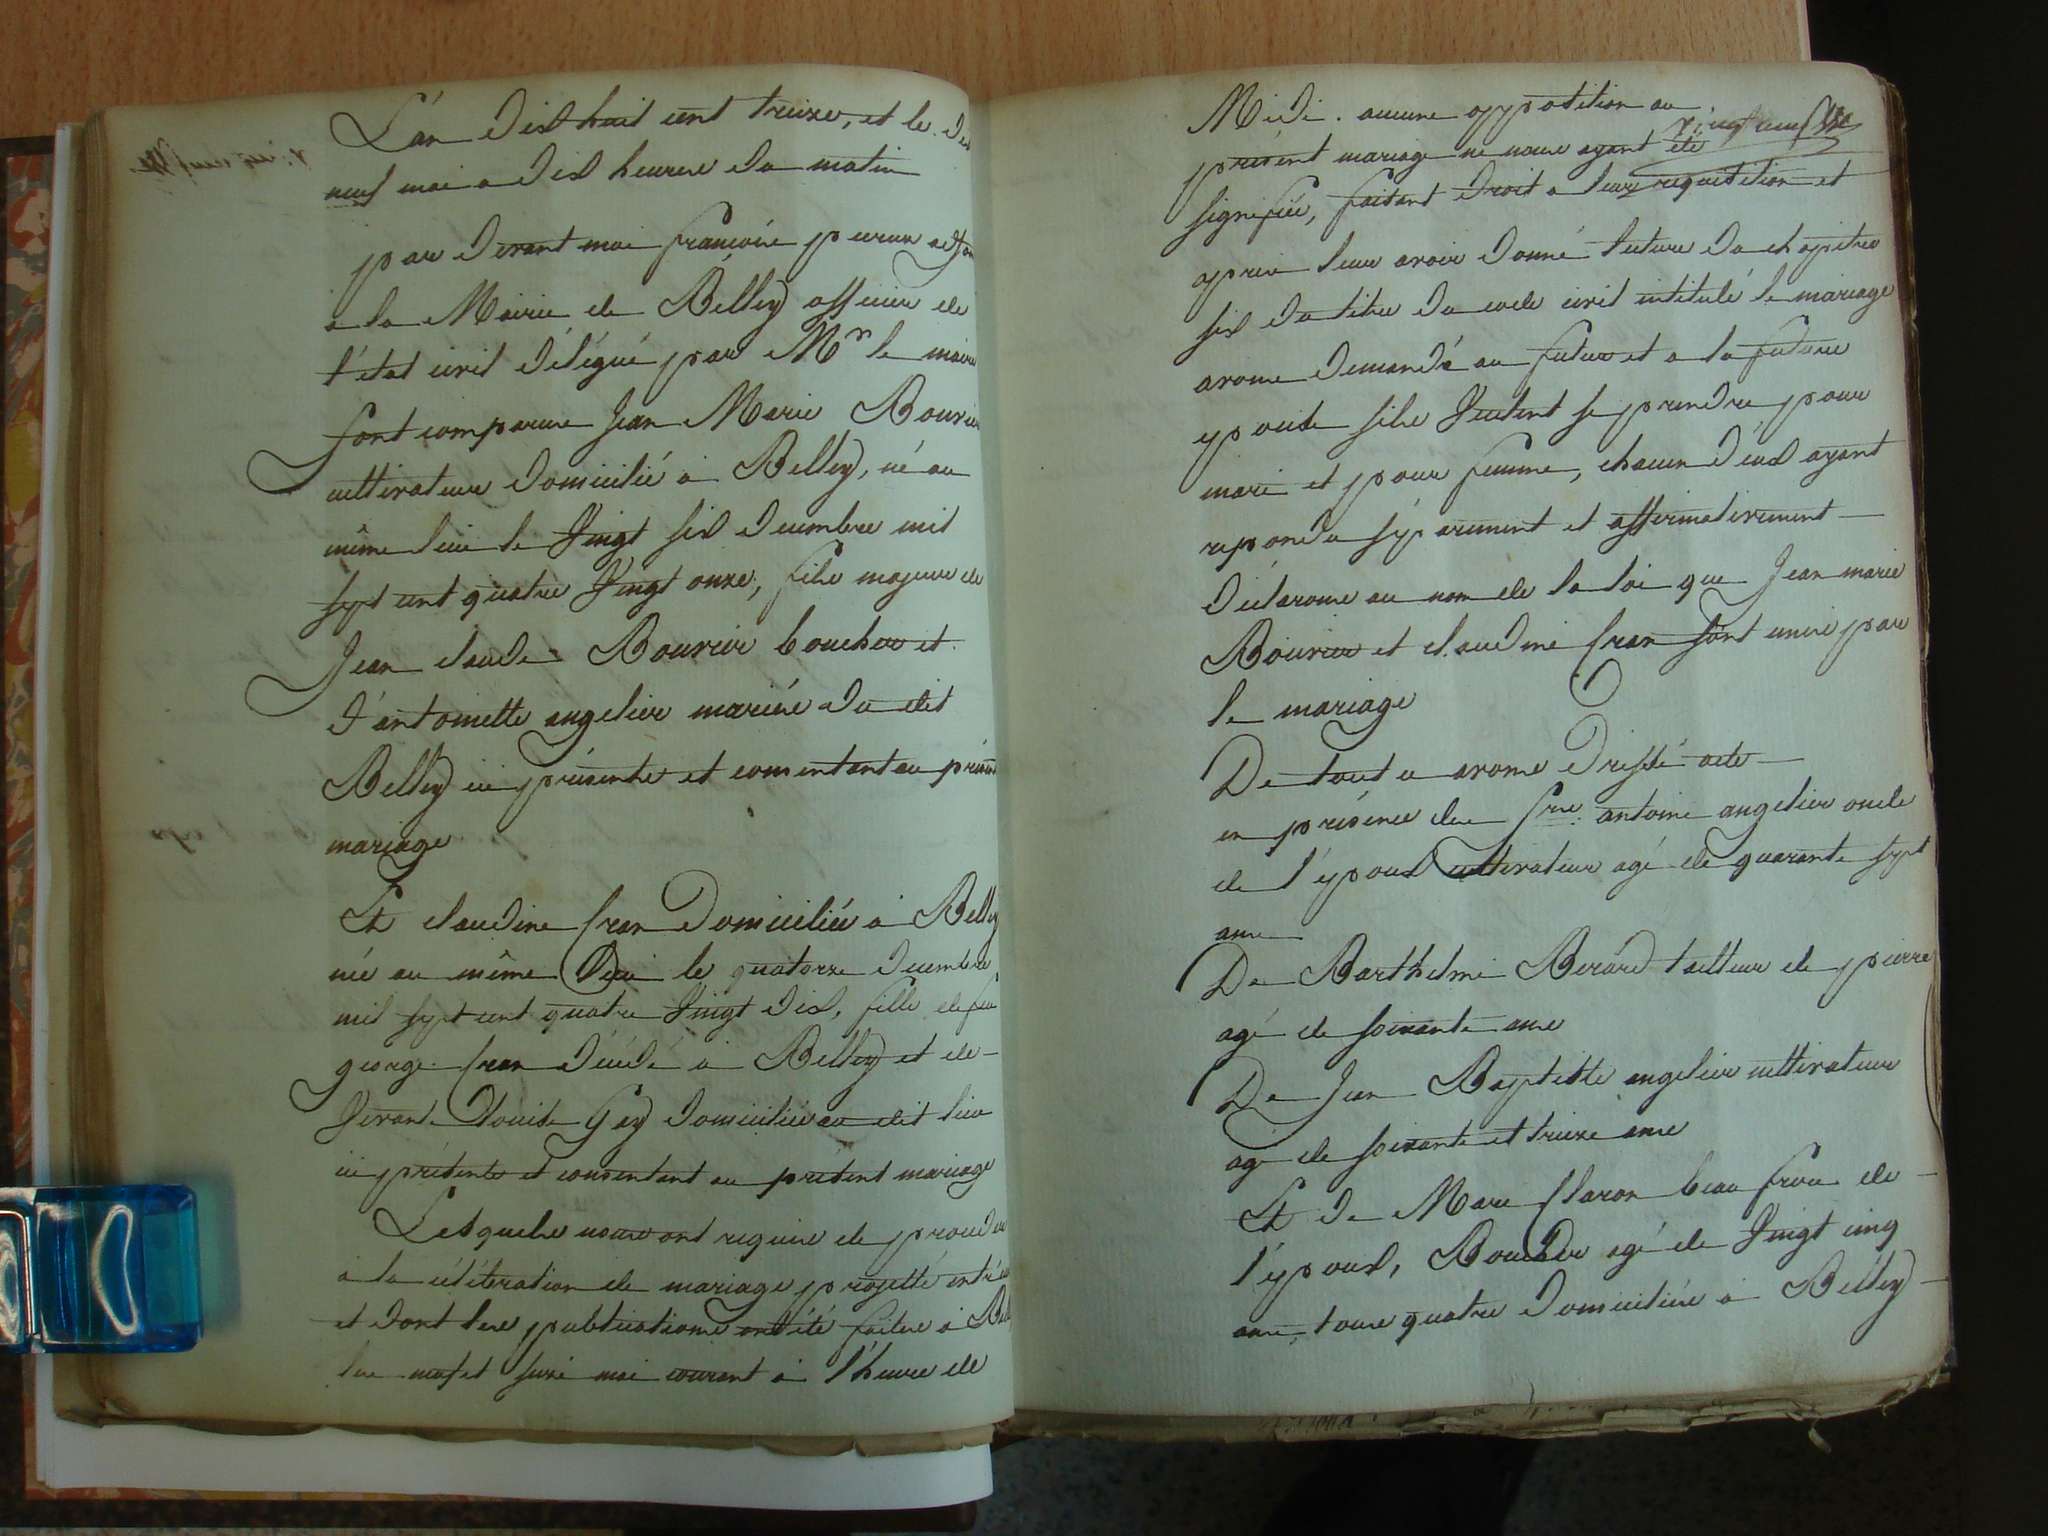 L'an dix huit cent treize, et le dix
neuf mai a dix heures du matin
par devant moi françois peuran adjoint
a la Mairie de Belley officier de
l'état civil délégué par Mr le maire
sont comparus Jean Marie Bouvier
cultivateur domicilié a Belley, né au
même lieu le Vingt six decembre mil
sept cent quatre Vingt onze, fils majeur de
Jean claude Bouvier boucher et
d'antoinette angelier mariés du dit
Belley ici présents et consentant au présent
mariage
Et claudine Cran domiciliée a Belley
née au même lieu le quatorze decembre
mil sept cent quatre Vingt dix, fille de feu
george Cran décédé a Belley et de
Vivante Louise Gay domiciliée au dit lieu
ici présente et consentant au présent mariage
Lesquels nous ont requis de proceder
a la célébration de mariage projetté entr'eux
et dont les publications ont été faites a Belley
les neuf et seize mai courant a l'heure de
Midi. aucune opposition au
vingt neuf
présent mariage ne nous ayant été
signifiée, faisant droit a leur requisition et
apres leur avoir donné lecture du chapitre
six du titre du code civil intitulé le mariage
avons demandé au futur et a la future
epouse sils Veulent se prendre pour
mari et pour femme, chacun d'eux ayant
repondu séparement et affirmativement
déclarons au nom de la loi que Jean marie
Bouvier et claudine Cran sont unis par
le mariage
De tout ce avons dressé acte
en présence des Srs antoine angelier oncle
de l'époux cultivateur agé de quarante sept
ans
De Barthelmi Berard tailleur de pierre
agé de soixante ans
De Jean Baptiste angelier cultivateur
agé de soixante et treize ans
Et de Marc Claron beau frere de
l'époux, Boucher agé de Vingt cinq
ans, tous quatre domiciliés a Belley